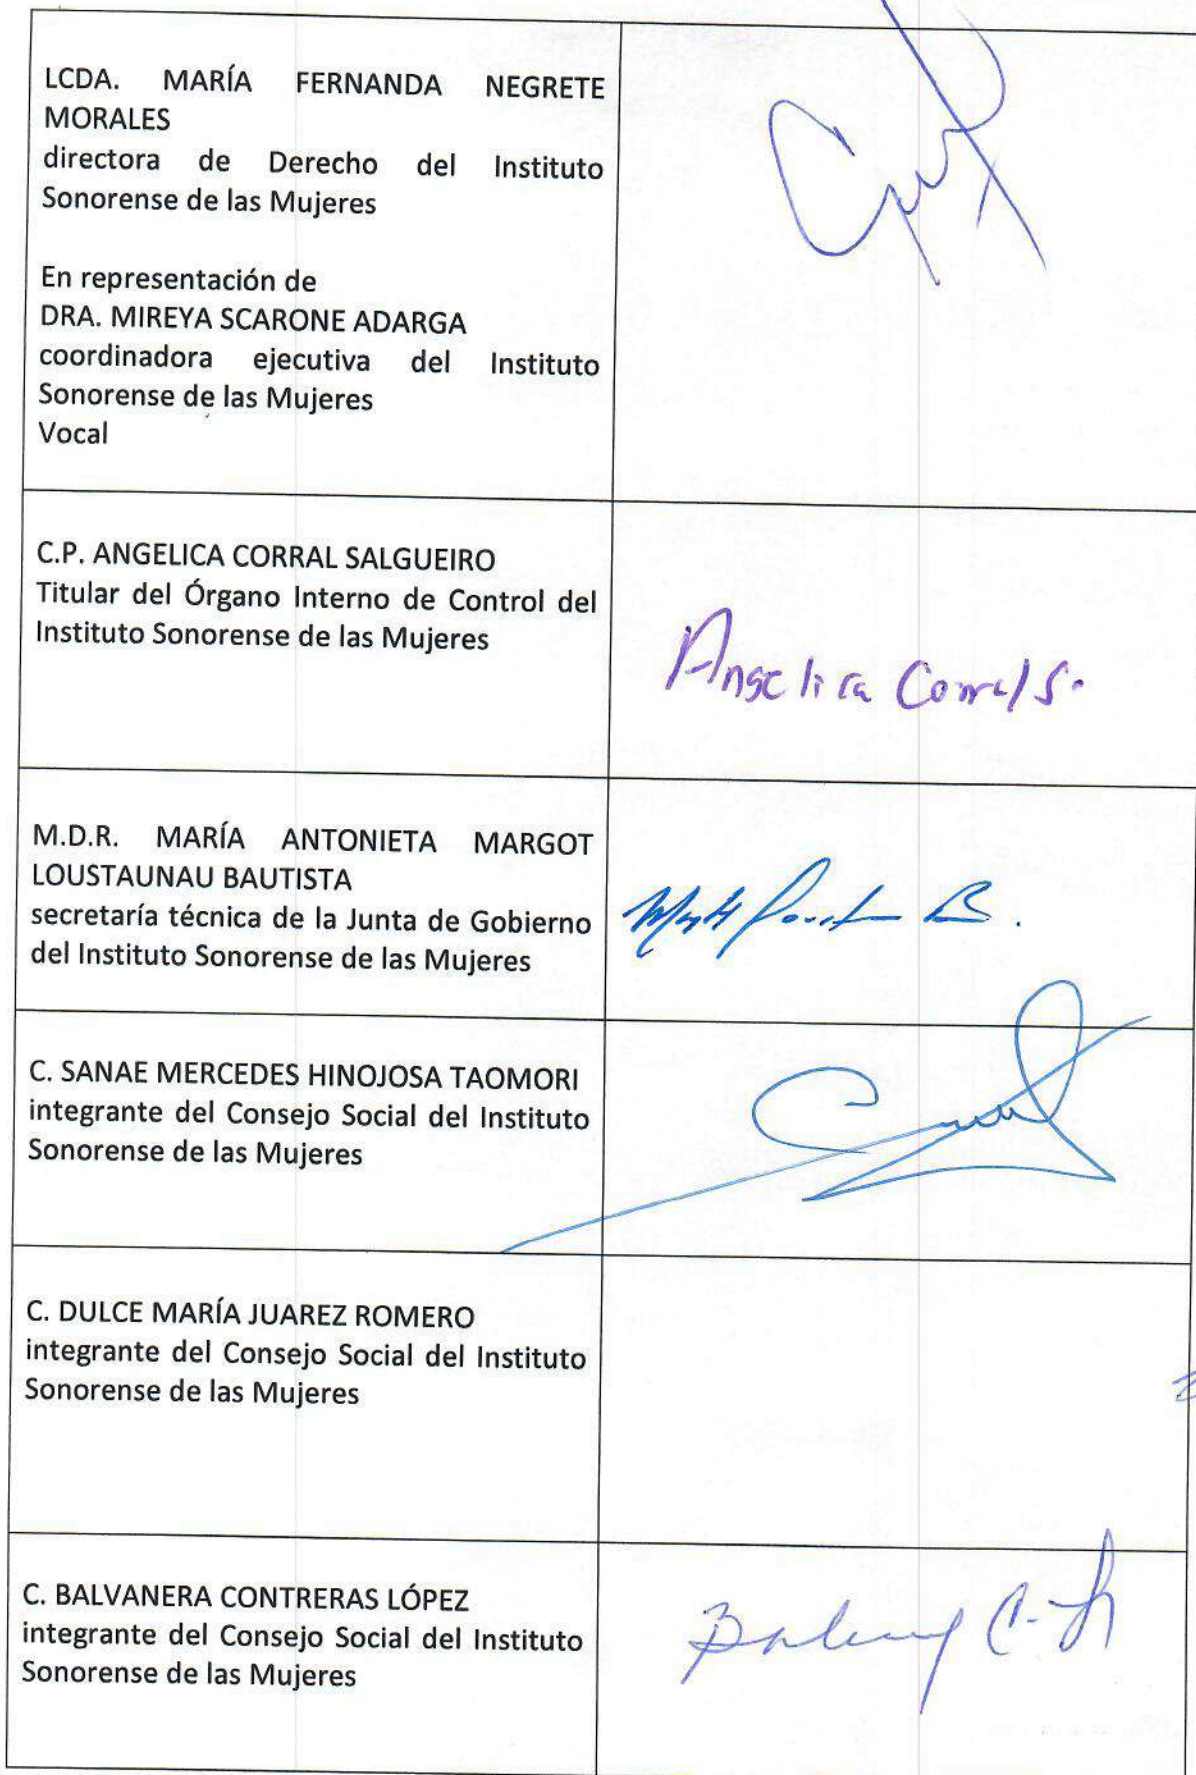 LCDA. MARÍA FERNANDA NEGRETE
MORALES
directora de Derecho del Instituto
Sonorense de las Mujeres
En representación de
DRA. MIREYA SCARONE ADARGA
coordinadora ejecutiva del Instituto
Sonorense de las Mujeres
Vocal
C.P. ANGELICA CORRAL SALGUEIRO
Titular del Órgano Interno de Control del
Instituto Sonorense de las Mujeres
Angelica Corral S.
M.D.R. MARÍA ANTONIETA MARGOT
LOUSTAUNAU BAUTISTA
secretaría técnica de la Junta de Gobierno
del Instituto Sonorense de las Mujeres
C. SANAE MERCEDES HINOJOSA TAOMORI
integrante del Consejo Social del Instituto
Sonorense de las Mujeres
C. DULCE MARÍA JUAREZ ROMERO
integrante del Consejo Social del Instituto
Sonorense de las Mujeres
C. BALVANERA CONTRERAS LÓPEZ
integrante del Consejo Social del Instituto
Sonorense de las Mujeres